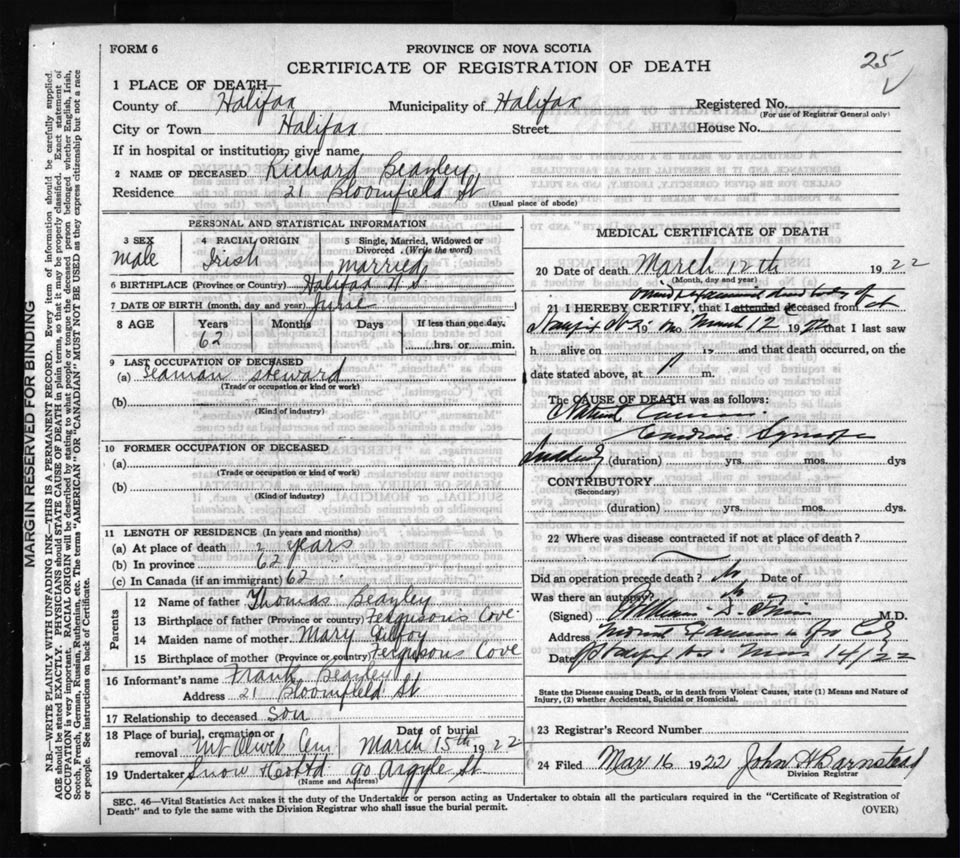 FORM 6
PROVINCE OF NOVA SCOTIA
25
CERTIFICATE OF REGISTRATION OF DEATH
1 PLACE OF DEATH
County of Halifax Municipality of Halifax Registered No.
(For use of Registrar General only)
City or Town Halifax Street House No.
If in hospital or institution, give name
2 NAME OF DECEASED Richard Beayley
Residence 21 Bloomfield St
(Usual place of abode)
PERSONAL AND STATISTICAL INFORMATION
3 SEX 4 RACIAL ORIGIN 5 Single, Married, Widowed or
Divorced (Write the word)
Male Irish married
6 BIRTHPLACE (Province or Country) Halifax N.S.
7 DATE OF BIRTH (month, day and year) June
8 AGE Years Months Days If less than one day,
62 hrs. or min.
9 LAST OCCUPATION OF DECEASED
(a) Seaman steward
(Trade or occupation or kind or work)
(b)
(Kind of industry)
10 FORMER OCCUPATION OF DECEASED
(a)
(Trade or occupation or kind of work)
(b)
(Kind of industry)
11 LENGTH OF RESIDENCE (In years and months)
(a) At place of death 2 years
(b) In province 62 "
(c) In Canada (if an immigrant) 62 "
Parents
12 Name of father Thomas Beayley
13 Birthplace of father (Province or country) Ferguson's Cove
14 Maiden name of mother Mary Gilfoy
15 Birthplace of mother (Province or country) Fergusons Cove
16 Informant's name Frank Beayley
Address 21 Bloomfield St
17 Relationship to deceased son
18 Place of burial, cremation or Date of burial
removal Mt Olivet Cem March 15th 1922
19 Undertaker Snow & Co Ltd 90 Argyle St
(Name and Address)
MEDICAL CERTIFICATE OF DEATH
20 Date of death March 12th 1922
(Month, day and year)
21 I HEREBY CERTIFY, that I attended deceased from
March 12 1922 that I last saw
h alive on 19 and that death occurred, on the
date stated above, at m.
The CAUSE OF DEATH was as follows:
Natural Causes
Cardiac Syncope
Suddenly (duration) yrs. mos. dys
CONTRIBUTORY
(Secondary)
(duration) yrs. mos. dys.
22 Where was disease contracted if not at place of death?
Did an operation precede death? No Date of
Was there an autopsy? No
(Signed) William D. Finn M.D.
Address Medical Examiner
Date 14/22
State the Disease causing Death, or in death from Violent Causes, state (1) Means and Nature of
Injury, (2) whether Accidental, Suicidal or Homicidal.
23 Registrar's Record Number
24 Filed Mar 16 1922 John H Barnstead
Division Registrar
SEC. 46—Vital Statistics Act makes it the duty of the Undertaker or person acting as Undertaker to obtain all the particulars required in the "Certificate of Registration of
Death" and to fyle the same with the Division Registrar who shall issue the burial permit.
(OVER)
MARGIN RESERVED FOR BINDING
N.B.—WRITE PLAINLY WITH UNFADING INK—THIS IS A PERMANENT RECORD. Every item of information should be carefully supplied.
AGE should be stated EXACTLY. PHYSICIANS should STATE CAUSE OF DEATH in plain terms, so that it may be properly classified. Exact statement of
OCCUPATION is very important. RACIAL ORIGIN will be described by stating to what people or tongue the deceased person belonged whether English, Irish,
Scotch, French, German, Russian, Ruthenian, etc. The terms "AMERICAN" OR "CANADIAN" MUST NOT BE USED as they express citizenship but not a race
or people. See instructions on back of Certificate.